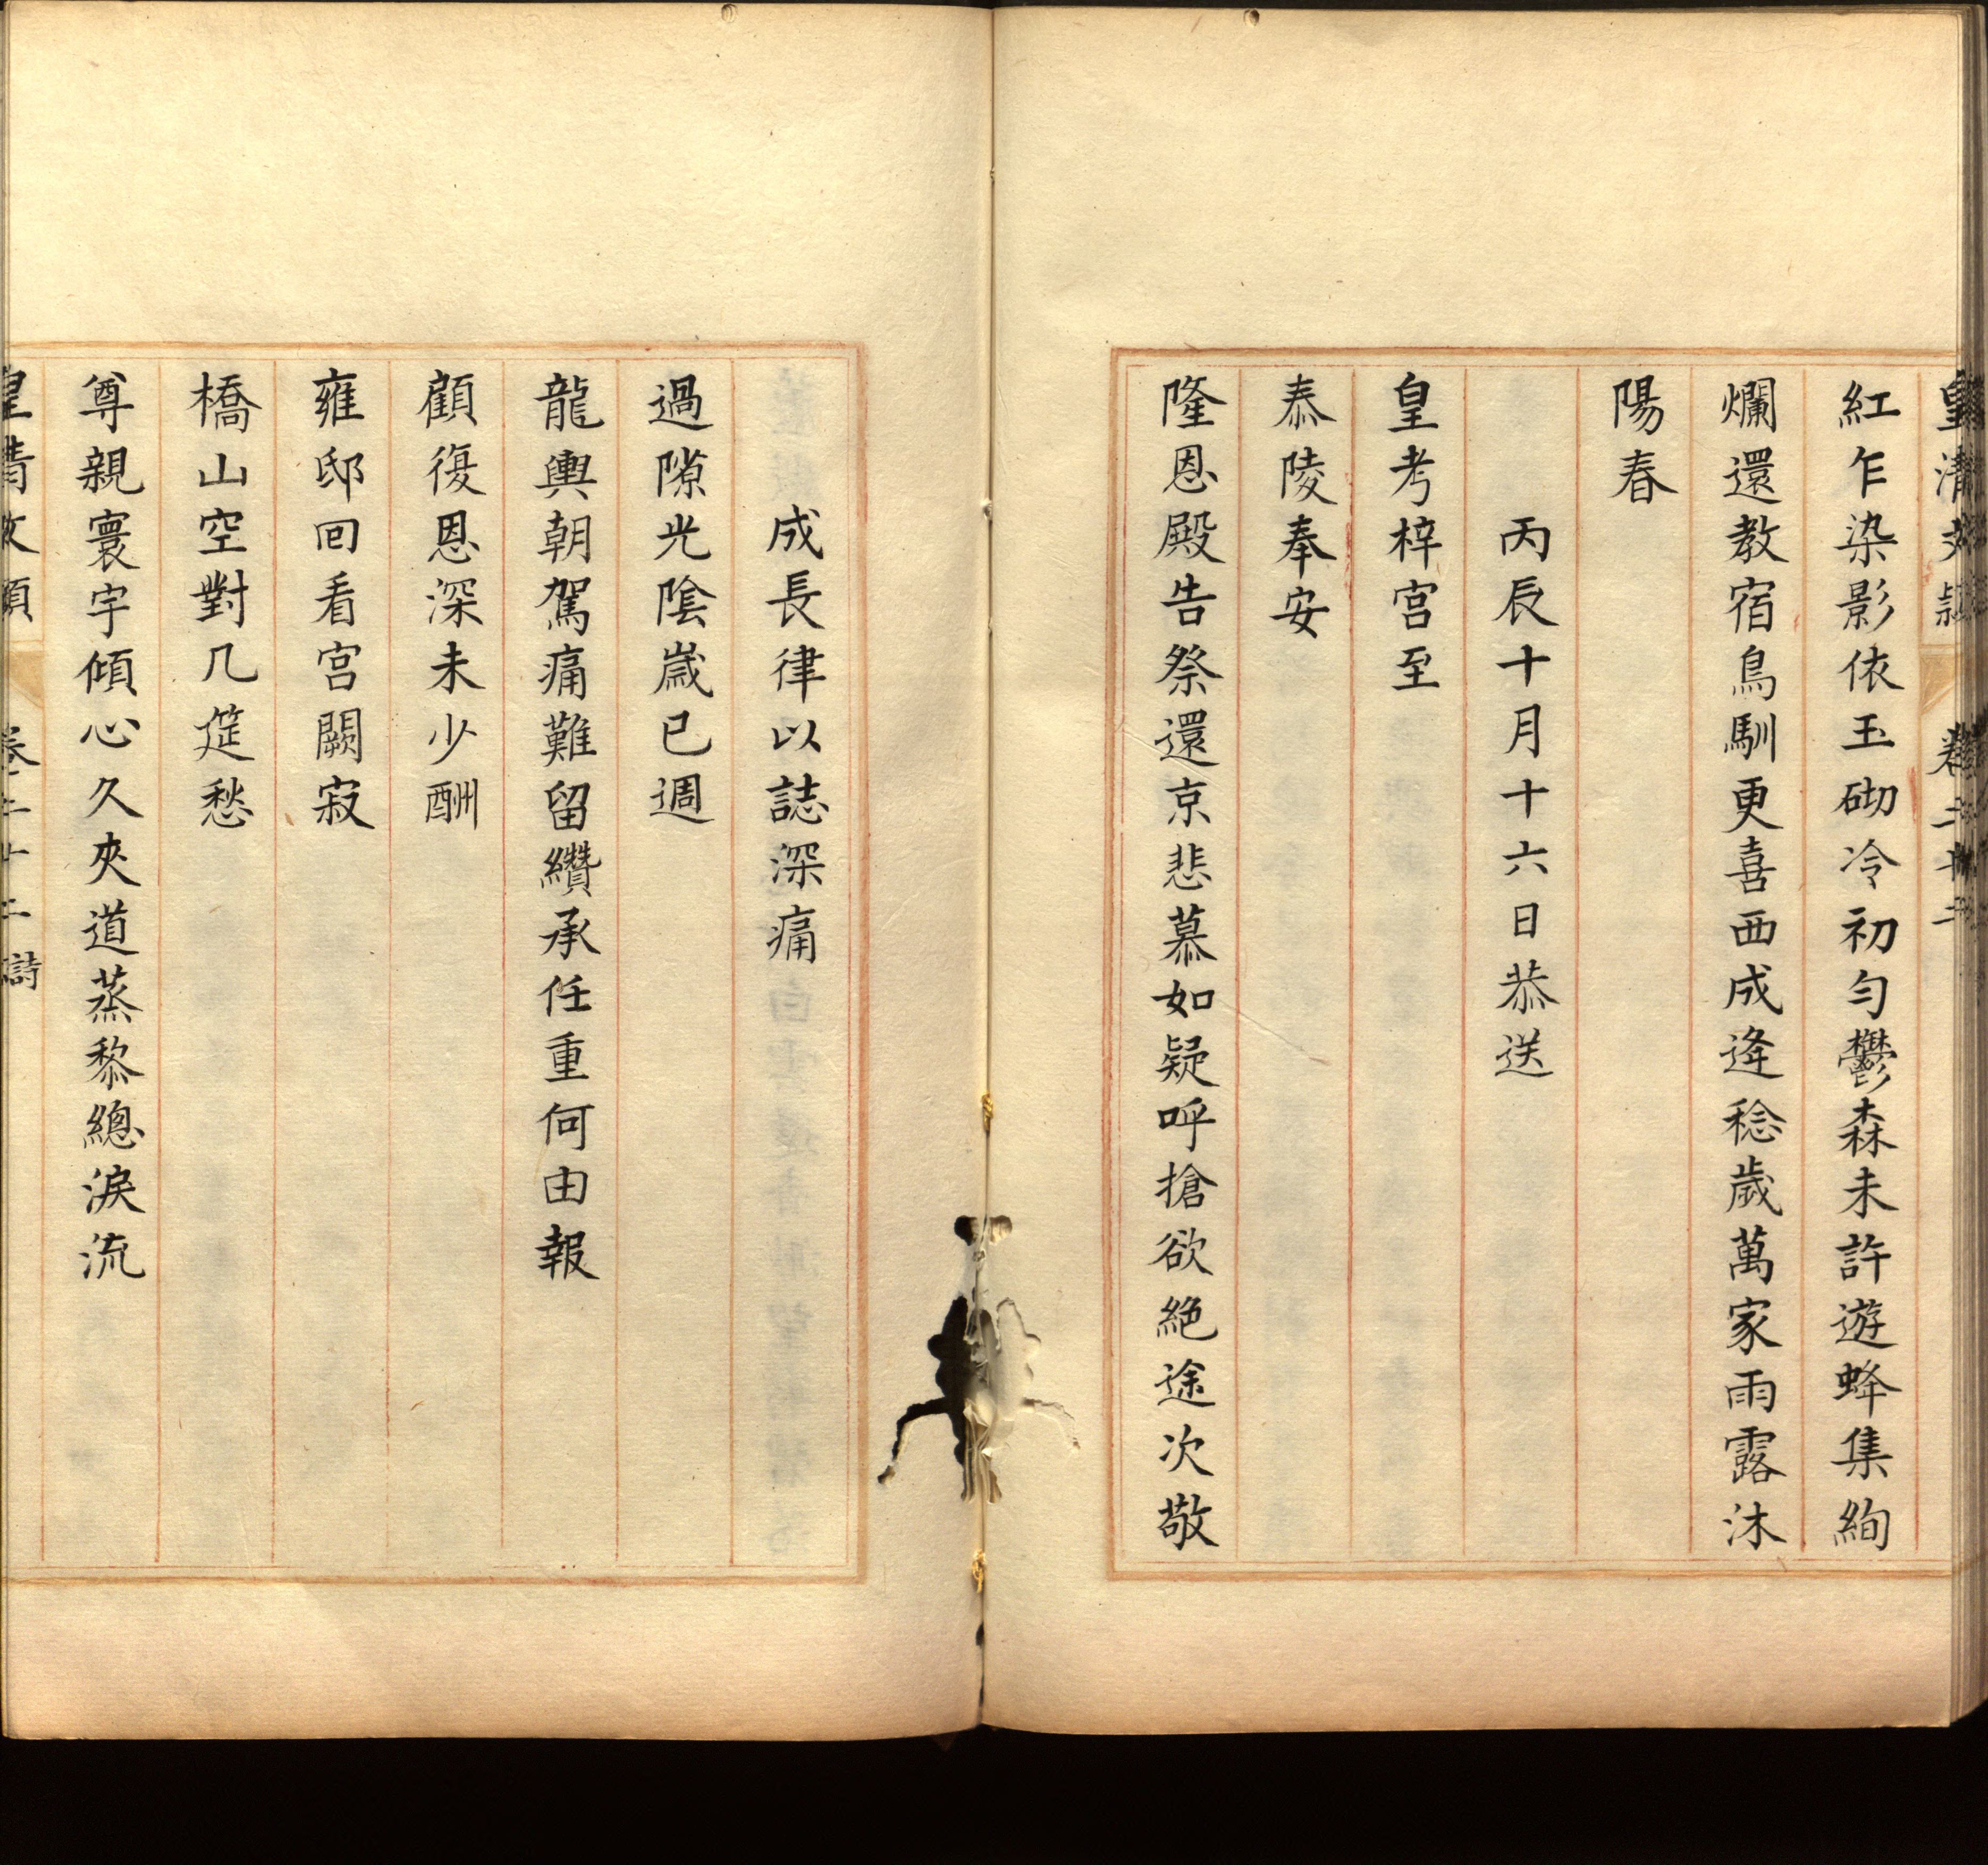 皇清文穎 卷二十二
紅乍染影依玉砌冷初勻鬱森未許遊蜂集絢
爛還教宿鳥馴更喜西成逢稔歲萬家雨露沐
陽春
丙辰十月十六日恭送
皇考梓宮至
泰陵奉安
隆恩殿告祭還京悲慕如疑呼搶欲絕途次敬
成長律以誌深痛
過隙光陰嵗已週
龍輿朝駕痛難留纘承任重何由報
顧復恩深未少酬
雍邸回看宮闕寂
橋山空對几筵愁
尊親寰宇傾心久夾道蒸黎總淚流
皇清文穎 卷二十二 詩